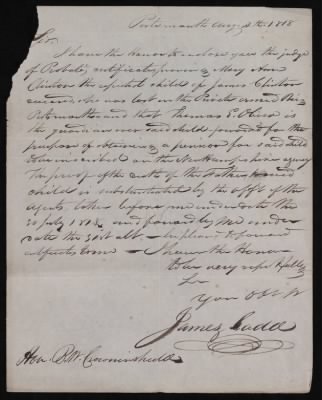 Portsmouth Aug 4th 1818
Sir
I have the honor to inclose you the judge
of Probate certificate proving Mary Ann
Clinton the reputed child of James Clinton
who was lost in the Private armed Ship
Portsmouth and that Thomas
is the guardian over said child for the
purpose of obtaining a pension for said child
to be inscribed on the New Hampshire agency
The proof of the death of the father of said
child is substantiated by the
taken before me under date the
30 July 1818 and forwarded by me under
date the 31st ult.
I have the Honor
to be very respectfully
Sir
Your Obt St
James Ladd
Hon. B. W. Crowninshield